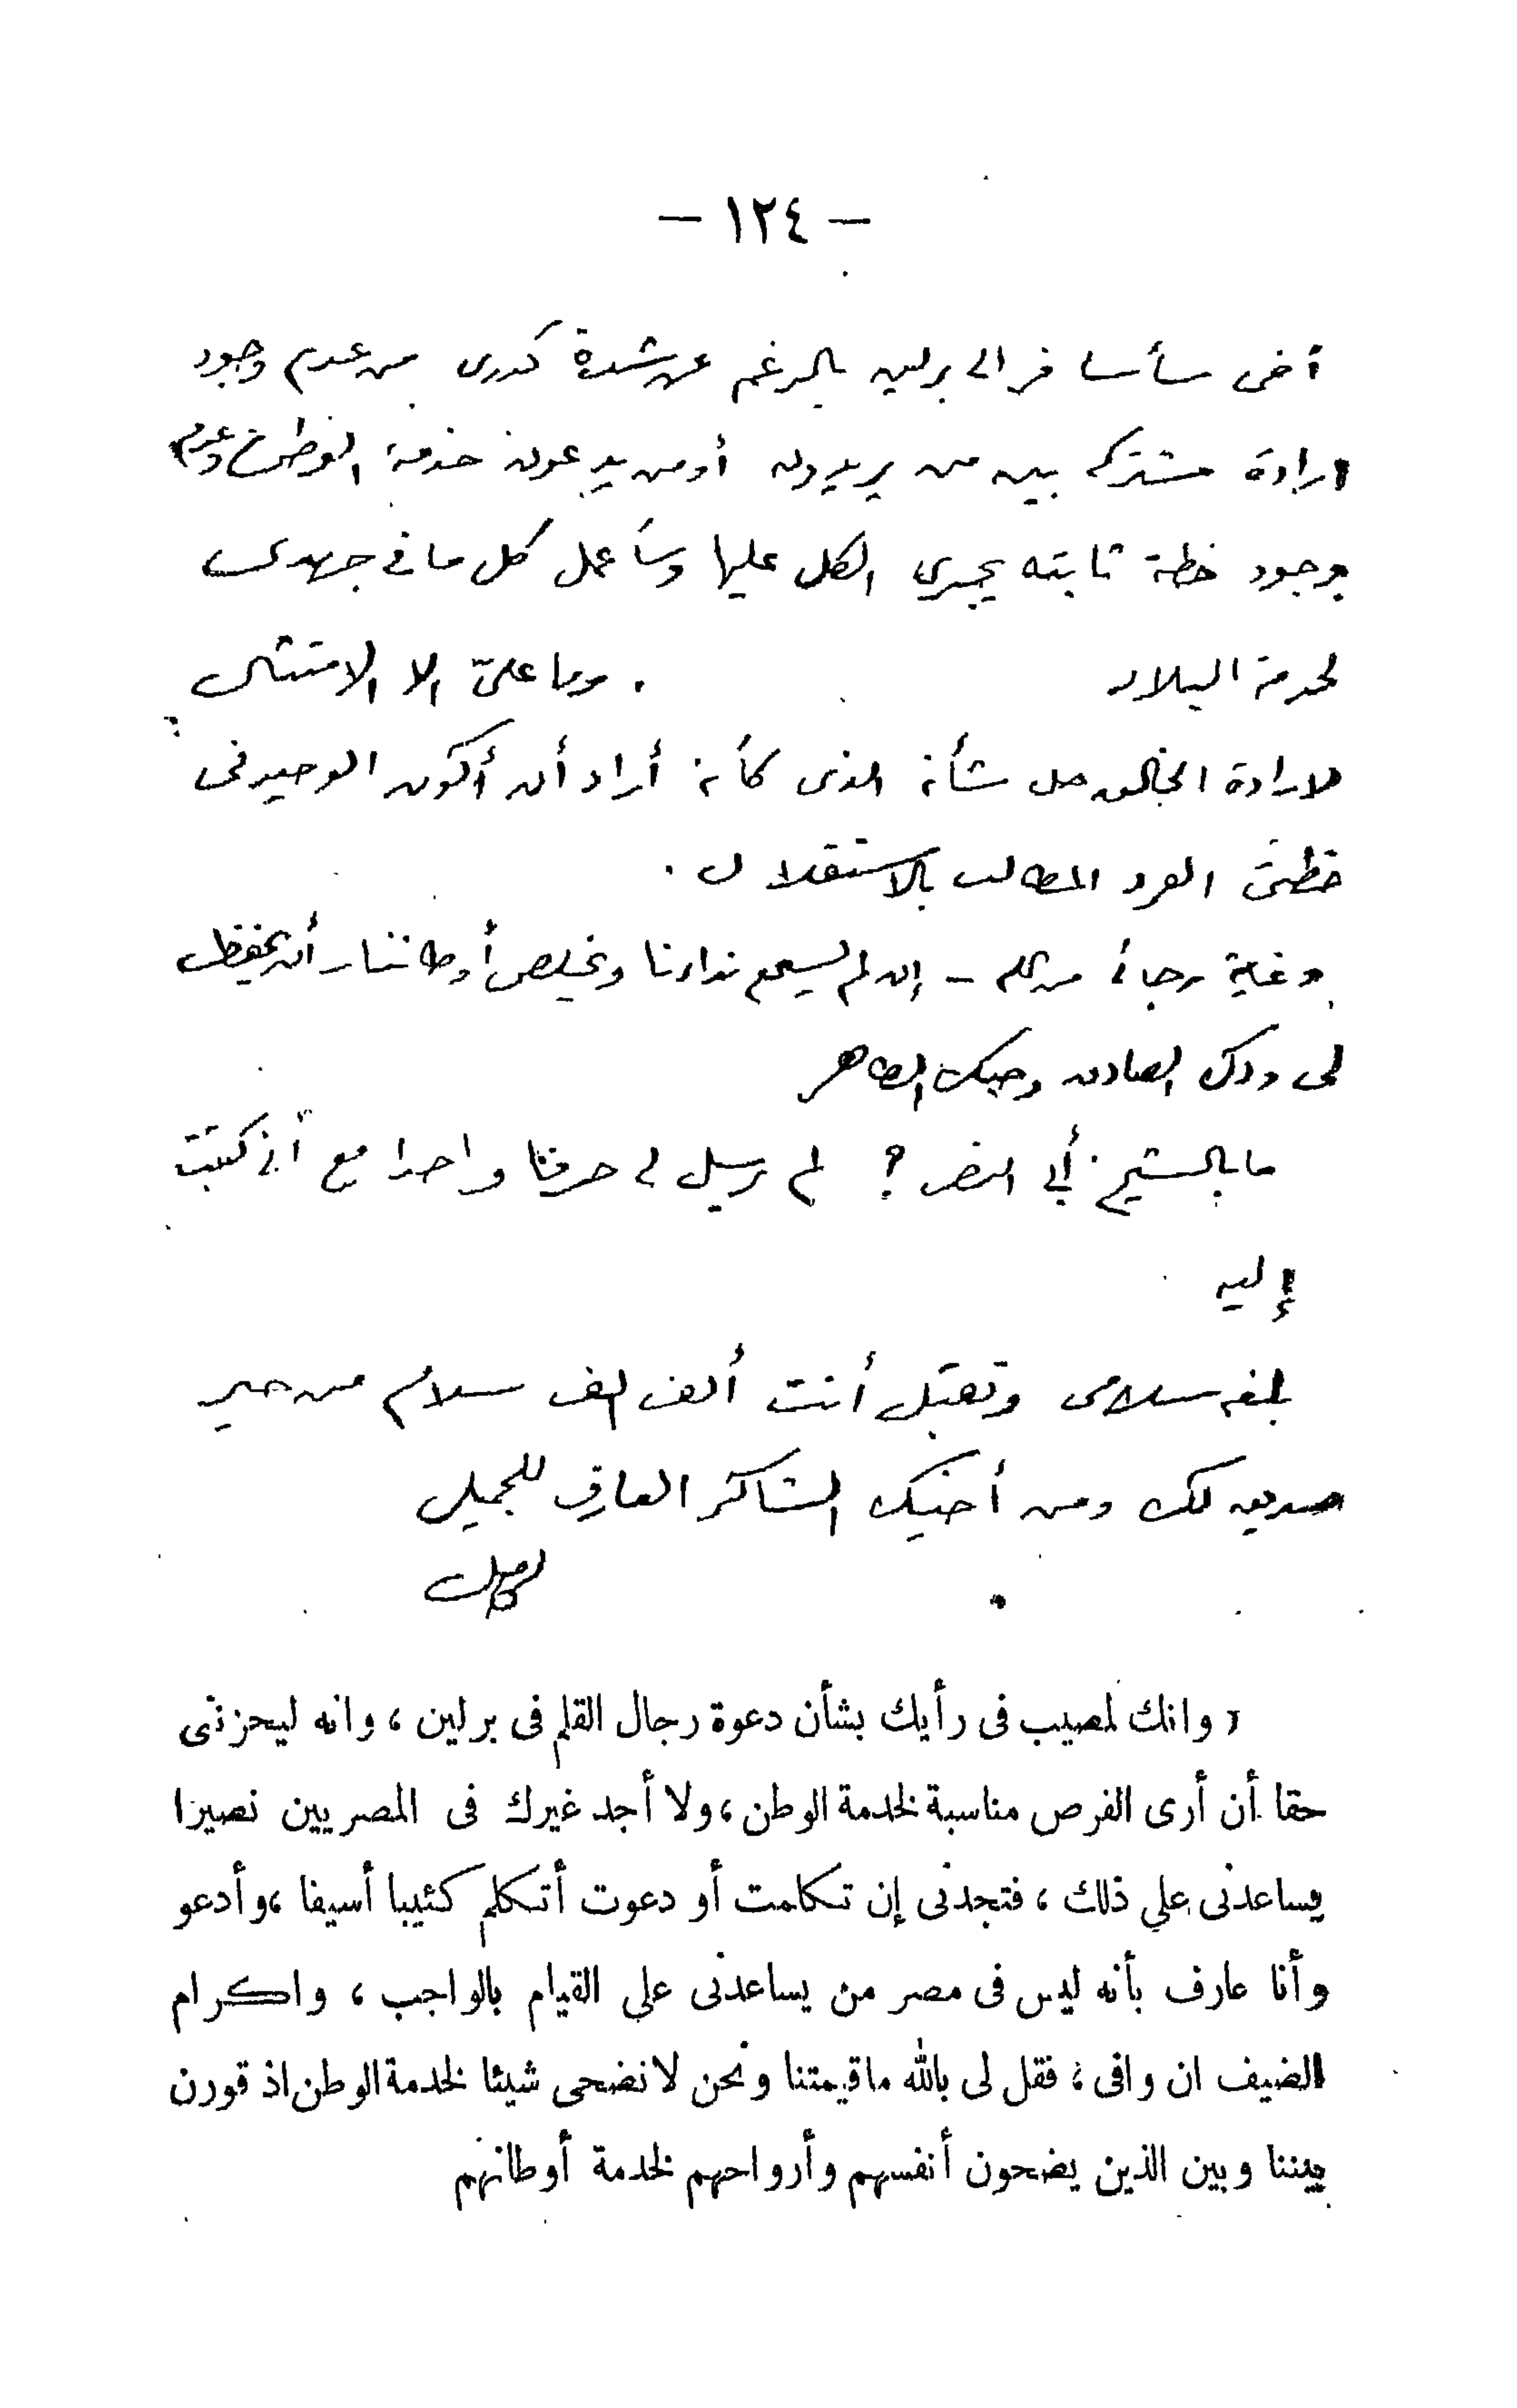 — ١٢٤ —
أخى سأسافر الى برلين بالرغم عن شدة كدرى من عدم وجود
ارادة مشتركه بين من يريدون أو من يدعون خدمة الوطن وعدم
وجود خطة ثابته يجرى الكل عليها وسأعمل كل ما فى جهدى
لخدمة البلاد . وما علىّ الا الامتثال
لارادة الخالق جل شأنه الذى كأنه أراد أن أكون الوحيد فى
خطتى الفرد المطالب بالاستقلال .
وغاية رجائى من الله — إن لم يسمع نداءنا ويخلص أوطاننا — أن يحفظ
لى ودك الصادق وحبك الطاهر
ما بال الشيخ أبى النصر ؟ لم يرسل لى حرفا واحدا مع أنى كتبت
إليه
بلغه سلامى وتقبل أنت ألف ألف سلام من خير
صديق لك ومن أخيك الشاكر العارف للجميل
« وانك لمصيب فى رأيك بشأن دعوة رجال القلم فى برلين ، وانه ليحزننى
حقا أن أرى الفرص مناسبة لخدمة الوطن ، ولا أجد غيرك فى المصريين نصيرا
يساعدنى على ذلك ، فتجدنى إن تكلمت أو دعوت أتكلم كئيبا أسيفا ، وأدعو
وأنا عارف بأنه ليس فى مصر من يساعدنى على القيام بالواجب ، واكرام
الضيف ان وافى ، فقل لى بالله ما قيمتنا ونحن لا نضحى شيئا لخدمة الوطن اذ قورن
بيننا وبين الذين يضحون أنفسهم وأرواحهم لخدمة أوطانهم